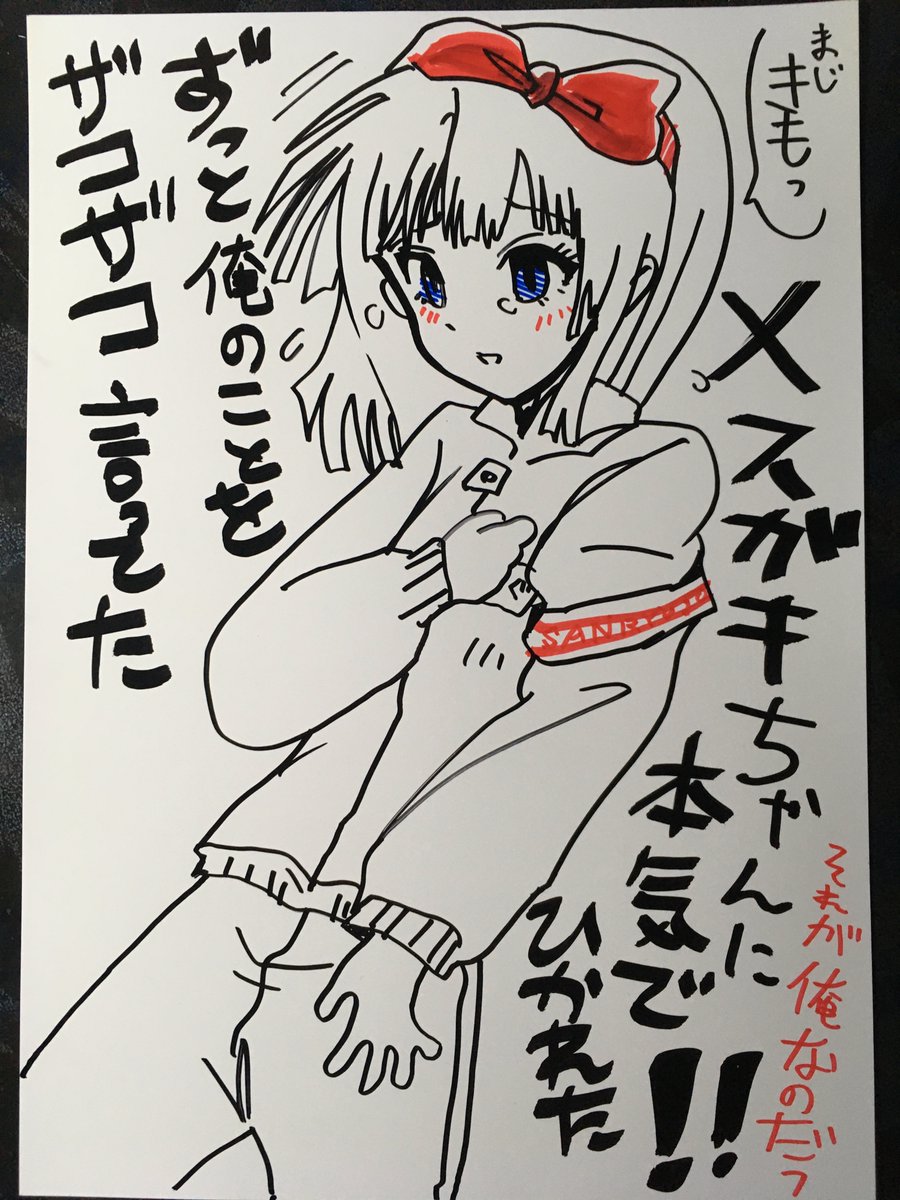 ずっと俺のことを
ザコザコ言ってた
メスガキちゃんに
本気で
ひかれた
!!
それが俺なのだっ
まじ
キモっ